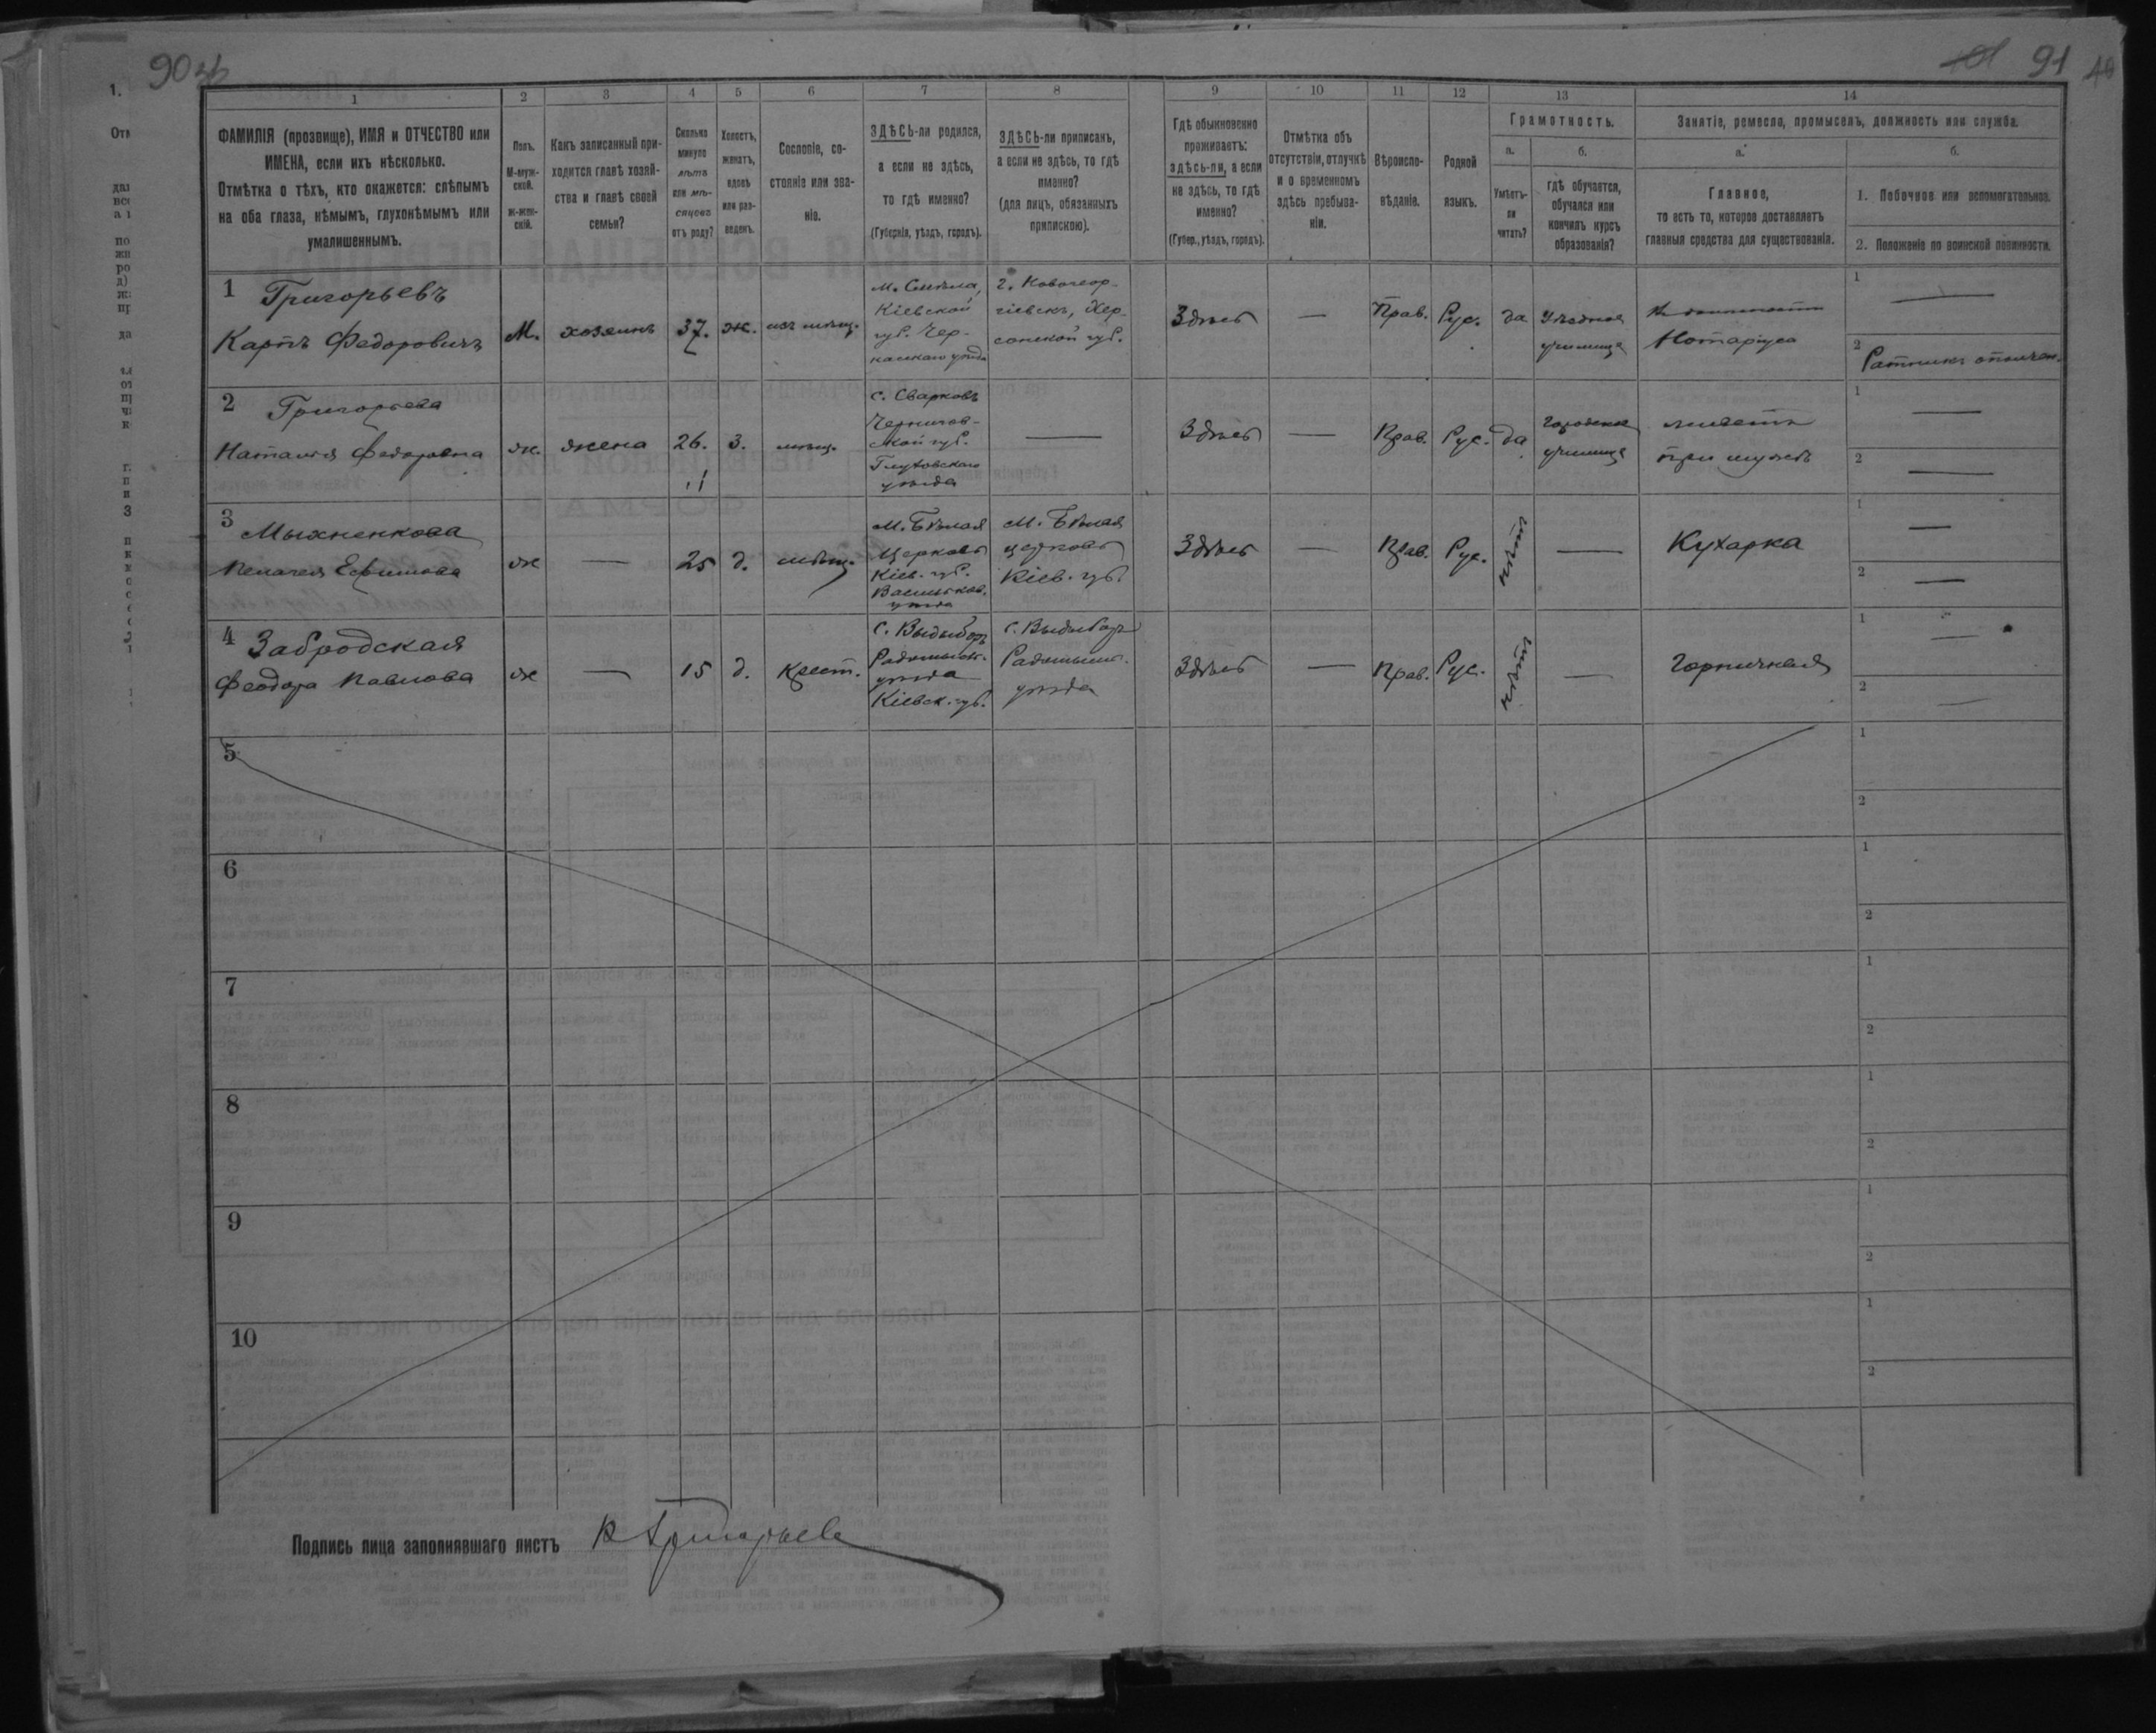 90 об
91
1
2
3
4
5
6
7
8
9
10
11
12
13
14
ФАМИЛІЯ (прозвище), ИМЯ и ОТЧЕСТВО или
ИМЕНА, если ихъ нѣсколько.
Отмѣтка о тѣхъ, кто окажется: слѣпымъ
на оба глаза, нѣмымъ, глухонѣмымъ или
умалишеннымъ.
Полъ.
М-муж-
ской.
ж-жен-
скій.
Какъ записанный при-
ходится главѣ хозяй-
ства и главѣ своей
семьи?
Сколько
минуло
лѣтъ
или мѣ-
сяцовъ
отъ роду?
Холостъ,
женатъ,
вдовъ
или раз-
веденъ.
Сословіе, со-
стояніе или зва-
ніе.
ЗДѢСЬ-ли родился,
а если не здѣсь,
то гдѣ именно?
(Губернія, уѣздъ, городъ).
ЗДѢСЬ-ли приписанъ,
а если не здѣсь, то гдѣ
именно?
(для лицъ, обязанныхъ
припискою).
Гдѣ обыкновенно
проживаетъ:
здѣсь-ли, а если
не здѣсь, то гдѣ
именно?
(Губер., уѣздъ, городъ).
Отмѣтка объ
отсутствіи, отлучкѣ
и о временномъ
здѣсь пребыва-
ніи.
Вѣроиспо-
вѣданіе.
Родной
языкъ.
Грамотность.
а.
Умѣетъ-
ли
читать?
б.
гдѣ обучается,
обучался или
кончилъ курсъ
образованія?
Занятіе, ремесло, промыселъ, должность или служба.
а.
Главное,
то есть то, которое доставляетъ
главныя средства для существованія.
б.
1. Побочное или вспомогательное.
2. Положеніе по воинской повинности.
1 Григорьевъ
Карпъ Федоровичъ
М.
хозяинъ
37.
ж.
изъ мѣщ.
м. Смѣла,
Кіевской
губ. Чер-
каскаго уѣзда
г. Новогеор-
гіевскъ, Хер-
сонской губ.
Здѣсь
—
Прав.
Рус.
да
Уѣздное
училище
Нотаріуса
1 —
2 Ратникъ ополчен.
2 Григорьева
Наталія Федоровна
ж.
жена
26.
З.
мѣщ.
с. Сварковъ
Чернигов-
ской губ.
Глуховскаго
уѣзда
—
Здѣсь
—
Прав.
Рус.
да
Городское
училище
живетъ
при мужѣ
1 —
2 —
3 Мыхненкова
Пелагея Ефимова
ж
—
25
д.
мѣщ.
м. Бѣлая
Церковь
Кіев. губ.
Васильков.
уѣзда
м. Бѣлая
церковь
Кіев. губ.
Здѣсь
—
Прав.
Рус.
нѣтъ
—
Кухарка
1 —
2 —
4 Забродская
Феодора Павлова
ж
—
15
д.
Крест.
с. Выдыборъ
Радомысл.
уѣзда
Кіевск. губ.
с. Выдыборъ
Радомысл.
уѣзда
Здѣсь
—
Прав.
Рус.
нѣтъ
—
Горничная
1 —
2 —
5
1
2
6
1
2
7
1
2
8
1
2
9
1
2
10
1
2
Подпись лица заполнявшаго листъ К Григорьевъ